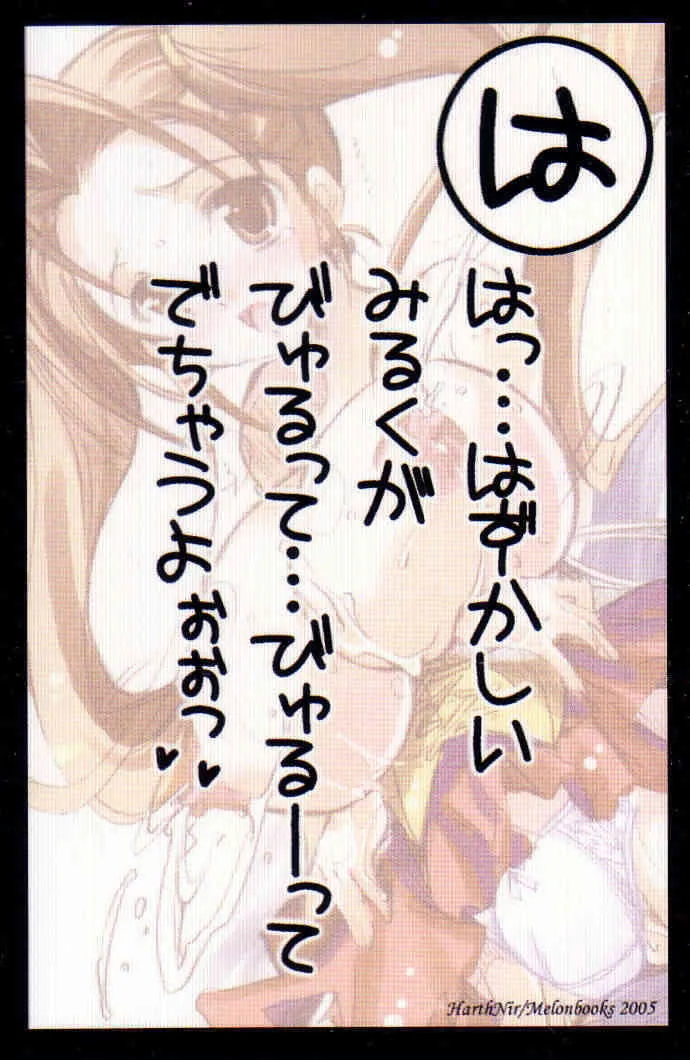 は
はっ…はずーかしい
みるくが
びゅるって…びゅるーって
でちゃうよぉおっ♥♥
HarthNir/Melonbooks 2005